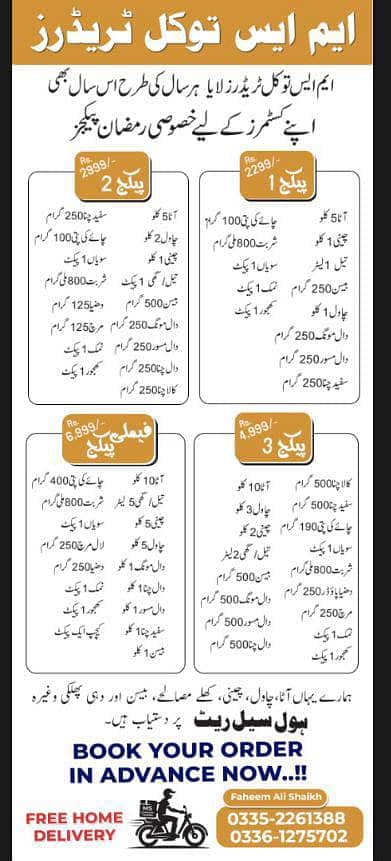 ایم ایس توکل ٹریڈرز
ایم ایس توکل ٹریڈرز لایا ہر سال کی طرح اس سال بھی
اپنے کسٹمرز کے لیے خصوصی رمضان پیکجز
Rs. 2299/-
پیکج 1
آٹا 5 کلو
چینی 1 کلو
تیل 1 لیٹر
بیسن 250 گرام
چاول 1 کلو
دال مونگ 250 گرام
دال مسور 250 گرام
سفید چنا 250 گرام
چائے کی پتی 100 گرام
شربت 800 ملی گرام
سویاں 1 پیکٹ
نمک 1 پیکٹ
کھجور 1 پیکٹ
Rs. 2999/-
پیکج 2
آٹا 5 کلو
چاول 2 کلو
چینی 1 کلو
تیل / گھی 1 پیکٹ
بیسن 500 گرام
دال مونگ 250 گرام
دال مسور 250 گرام
دال چنا 250 گرام
کالا چنا 250 گرام
سفید چنا 250 گرام
چائے کی پتی 100 گرام
سویاں 1 پیکٹ
شربت 800 ملی گرام
دھنیا 125 گرام
مرچ 125 گرام
نمک 1 پیکٹ
کھجور 1 پیکٹ
Rs. 4,999/-
پیکج 3
آٹا 10 کلو
چاول 3 کلو
چینی 2 کلو
تیل / گھی 2 لیٹر
بیسن 500 گرام
دال مونگ 500 گرام
دال مسور 500 گرام
دال چنا 500 گرام
کالا چنا 500 گرام
سفید چنا 500 گرام
چائے کی پتی 190 گرام
سویاں 1 پیکٹ
شربت 800 ملی گرام
دھنیا پاؤڈر 250 گرام
مرچ 250 گرام
نمک 1 پیکٹ
کھجور 1 پیکٹ
Rs. 6,999/-
فیملی پیکج
آٹا 10 کلو
تیل / گھی 5 لیٹر
چینی 5 کلو
چاول 5 کلو
دال مونگ 1 کلو
دال چنا 1 کلو
دال مسور 1 کلو
سفید چنا 1 کلو
بیسن 1 کلو
چائے کی پتی 400 گرام
شربت 800 ملی گرام
سویاں 1 پیکٹ
لال مرچ 250 گرام
دھنیا 250 گرام
نمک 1 پیکٹ
کھجور 1 پیکٹ
کیچپ ایک پیکٹ
ہمارے یہاں آٹا، چاول، چینی، کھلے مصالحے، بیسن اور دہی پھلکی وغیرہ
ہول سیل ریٹ پر دستیاب ہیں۔
BOOK YOUR ORDER
IN ADVANCE NOW..!!
FREE HOME
DELIVERY
MS
Faheem Ali Shaikh
0335-2261388
0336-1275702